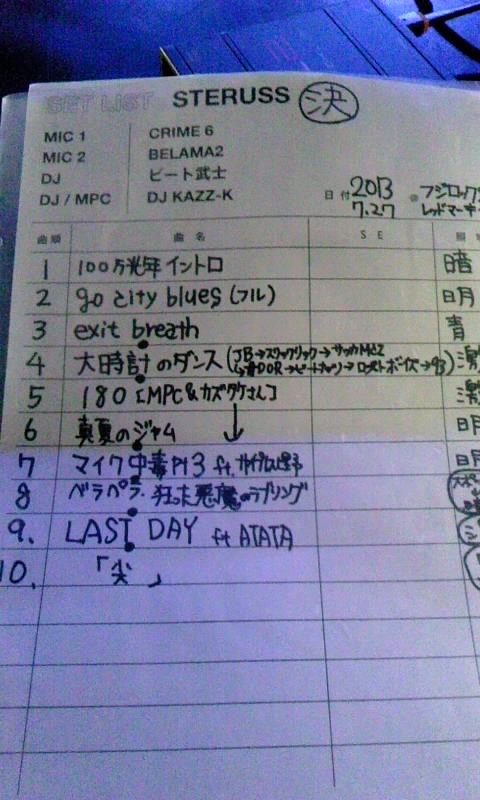 SET LIST STERUSS 決
MIC 1 CRIME 6
MIC 2 BELAMA2
DJ ビート武士
DJ / MPC DJ KAZZ-K
日付 2013 7.27 @フジロック
レッドマーキ
曲順 曲名 SE 照
1 100万光年イントロ 暗
2 go city blues (フル) 明
3 exit breath 青
4 大時計のダンス (JB→スリックリック→サッカMC2 激
→音DOR→ビートナッツ→ロストボーイズ→93)
5 180 [MPC&カズタケさん] 激
6 真夏のジャム 明
7 マイク中毒pt3 ft. 明
8 ベラペラ. 狂った悪魔のラブリング
9. LAST DAY ft ATATA
10. 「尖」